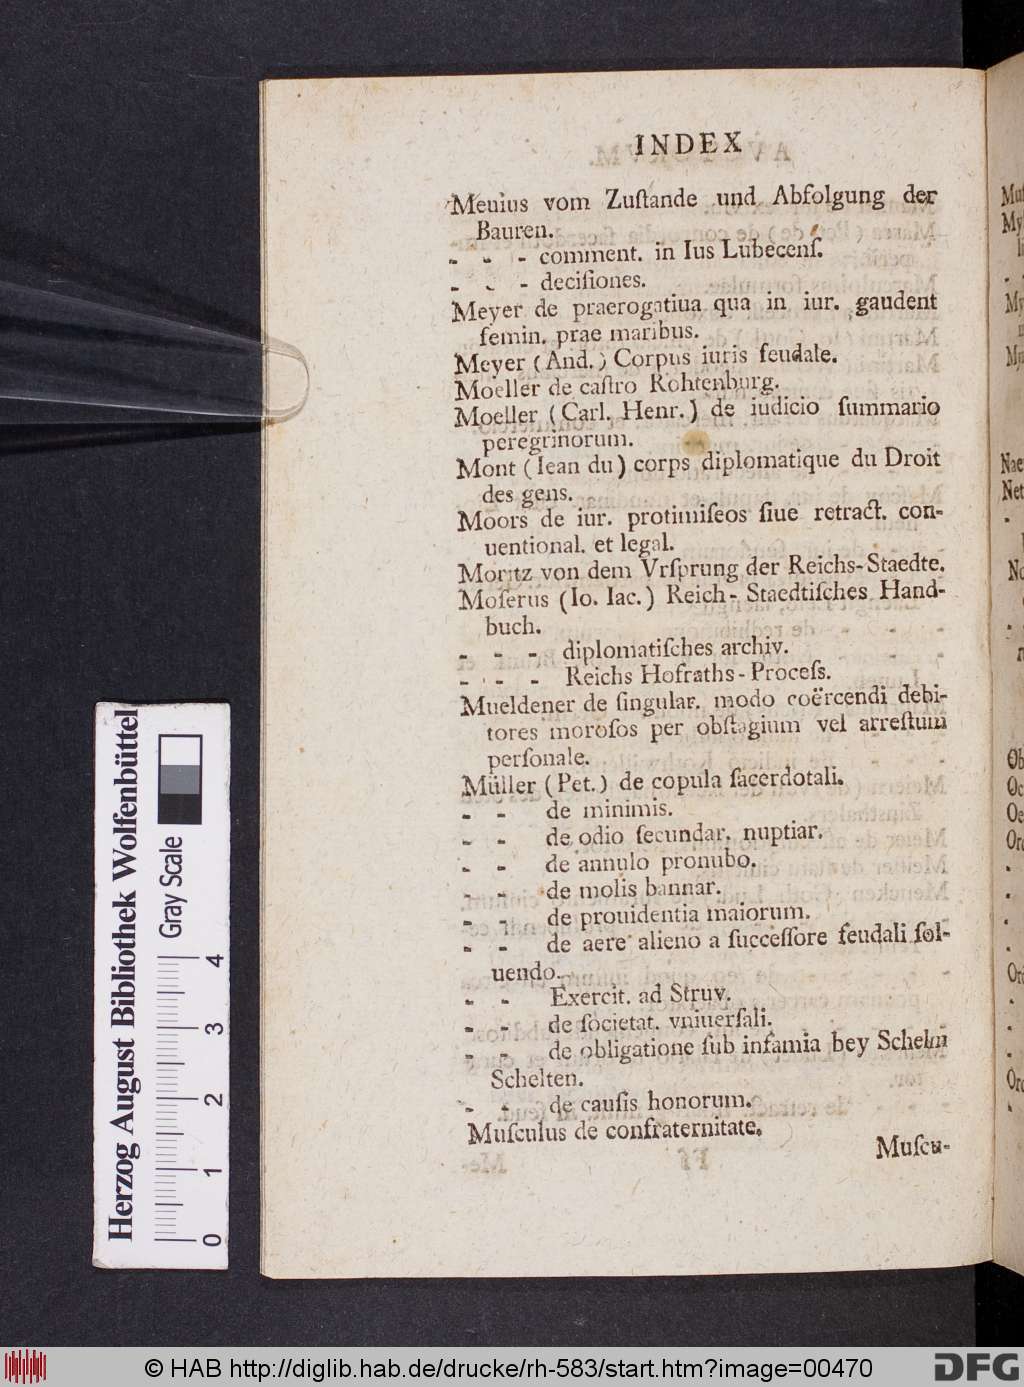 INDEX
Meuius vom Zuſtande und Abfolgung der
Bauren.
- - - comment. in Ius Lubecenſ.
- - - deciſiones.
Meyer de praerogatiua qua in iur. gaudent
femin. prae maribus.
Meyer (And.) Corpus iuris feudale.
Moeller de caſtro Rohtenburg.
Moeller (Carl. Henr.) de iudicio ſummario
peregrinorum.
Mont (Iean du) corps diplomatique du Droit
des gens.
Moors de iur. protimiſeos ſiue retract. con-
uentional. et legal.
Moritz von dem Vrſprung der Reichs-Staedte.
Moſerus (Io. Iac.) Reich-Staedtiſches Hand-
buch.
- - - diplomatiſches archiv.
- - - Reichs Hofraths-Proceſs.
Mueldener de ſingular. modo coërcendi debi-
tores moroſos per obſtagium vel arreſtum
perſonale.
Müller (Pet.) de copula ſacerdotali.
- - de minimis.
- - de odio ſecundar. nuptiar.
- - de annulo pronubo.
- - de molis bannar.
- - de prouidentia maiorum.
- - de aere alieno a ſucceſſore feudali ſol-
uendo.
- - Exercit. ad Struv.
- - de ſocietat. vniuerſali.
- - de obligatione ſub infamia bey Schelm
Schelten.
- - de cauſis honorum.
Muſculus de confraternitate.
Muſcu-
Herzog August Bibliothek Wolfenbüttel
Gray Scale
0 1 2 3 4
© HAB http://diglib.hab.de/drucke/rh-583/start.htm?image=00470
DFG